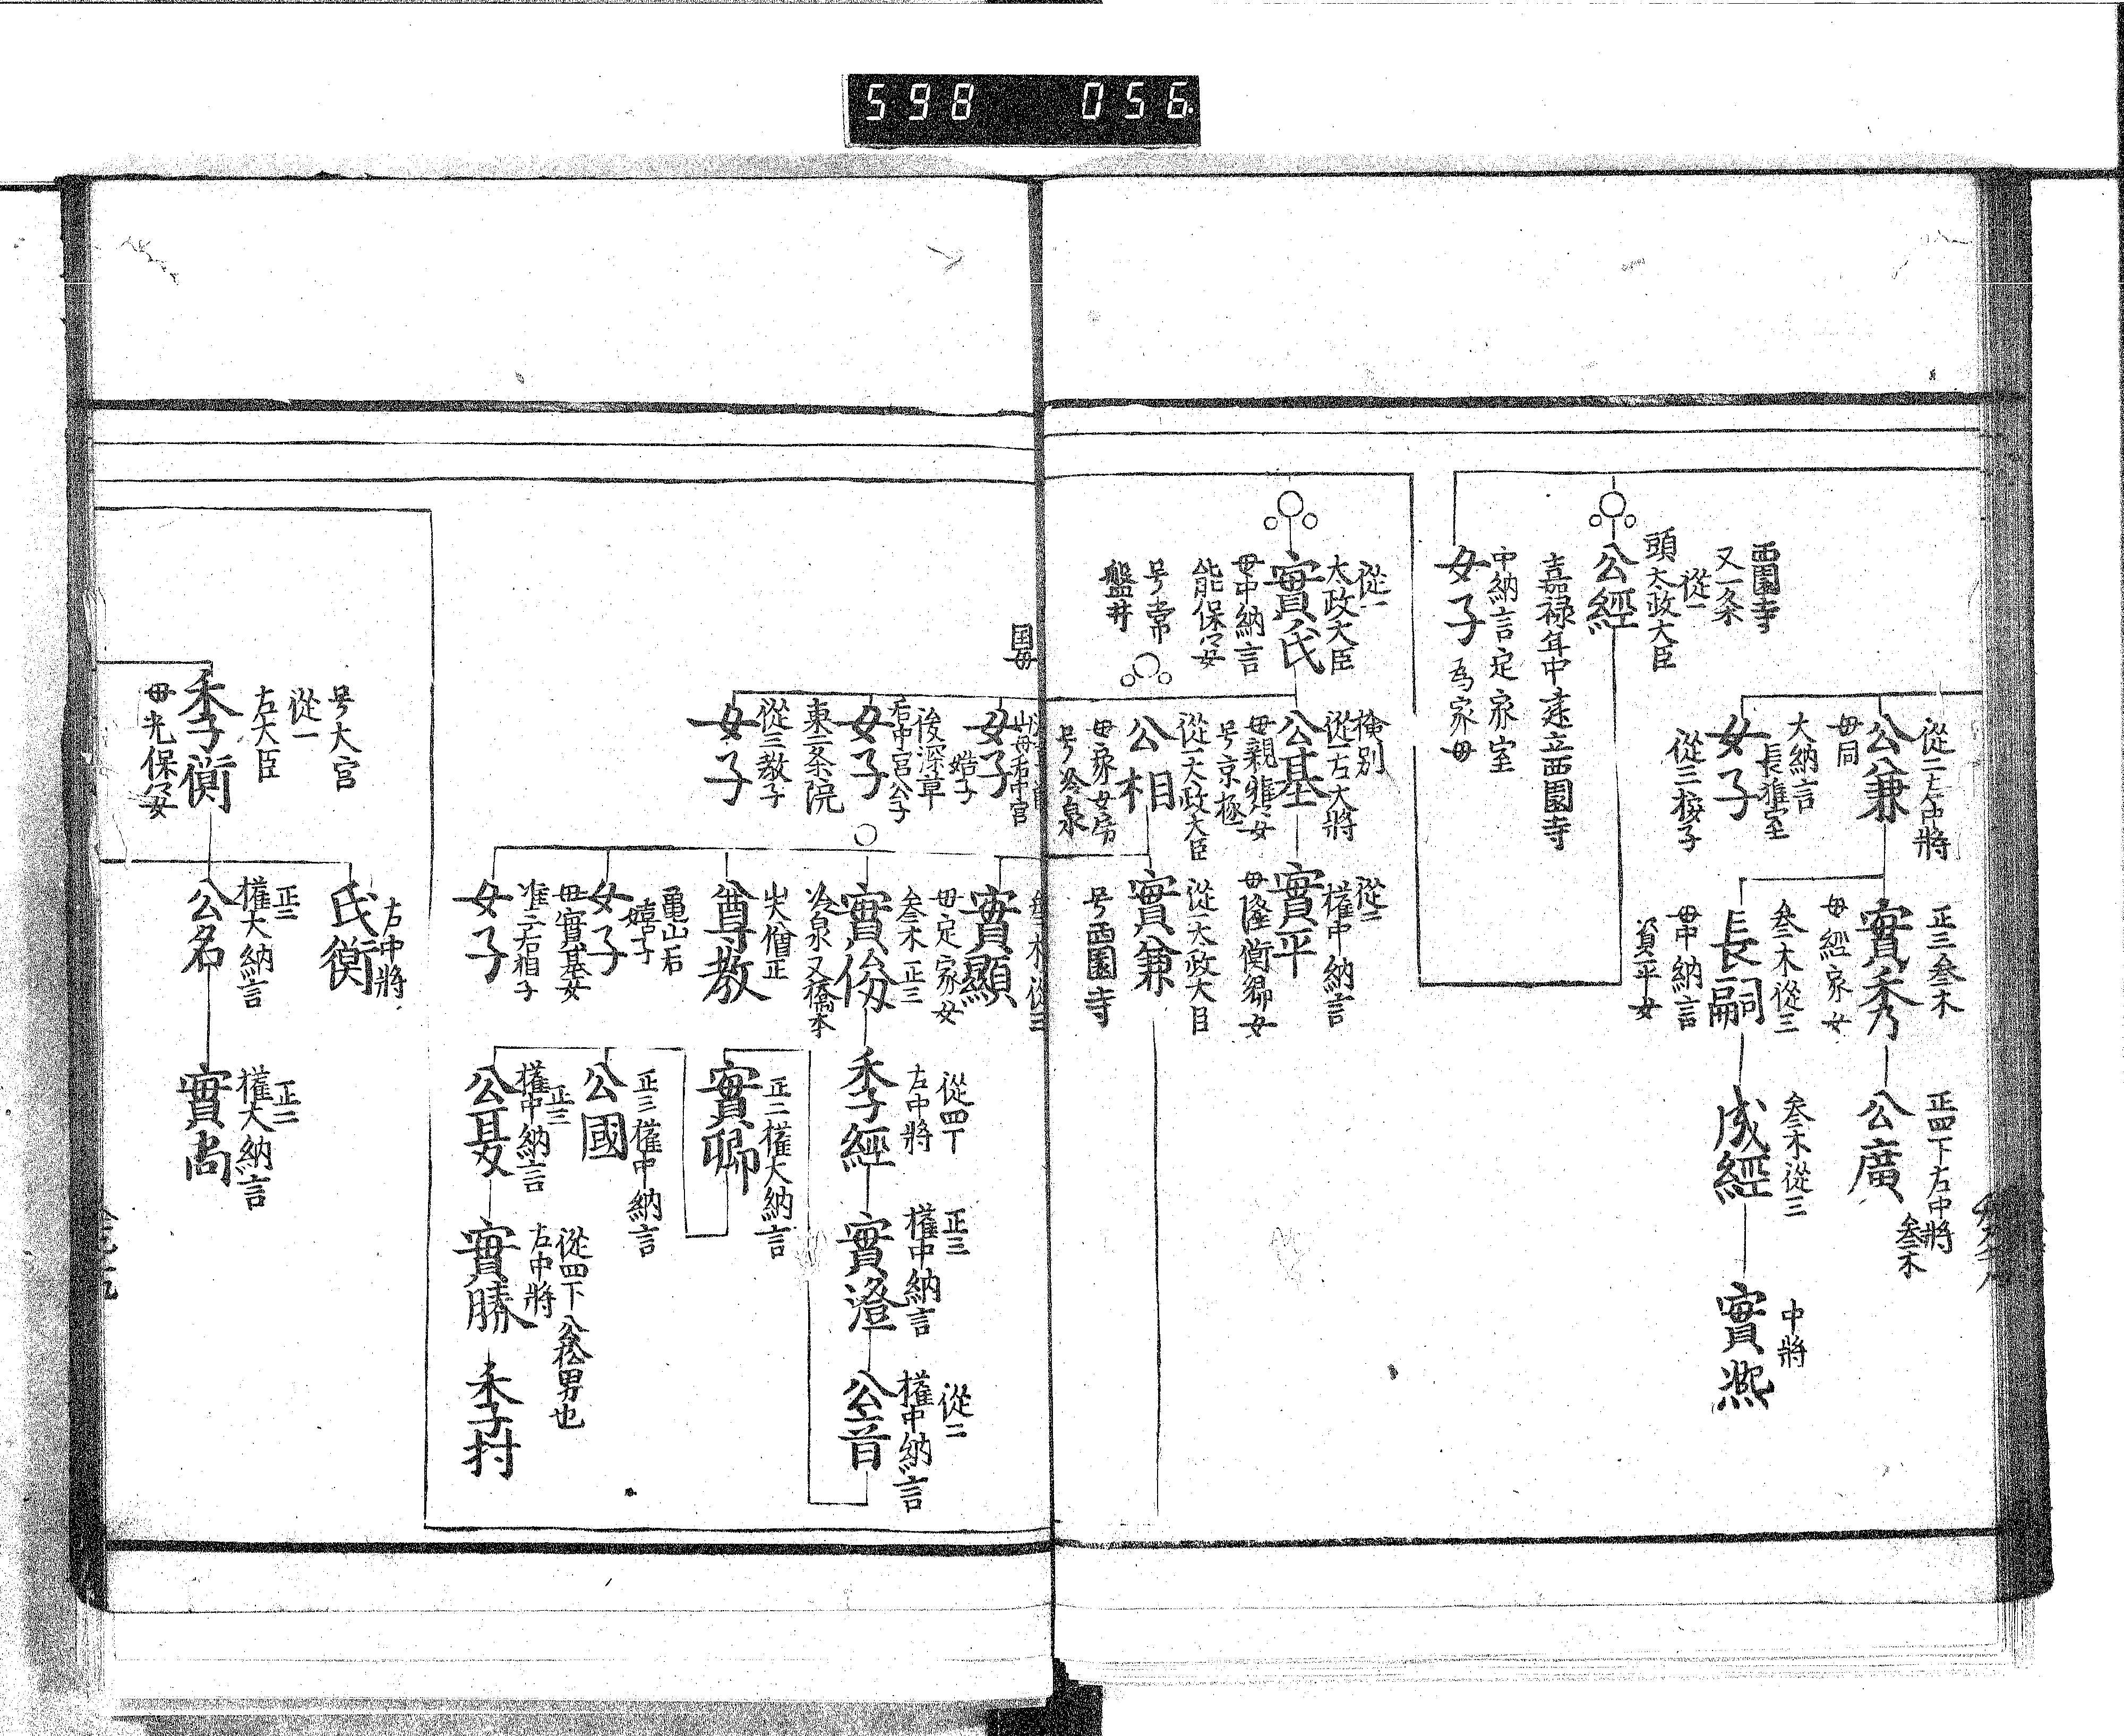 598 056
西園寺
又一条
從一
頭太政大臣
公經
嘉禄年中建立西園寺
中納言定家室
女子
為家母
從二左中將
公兼
母同
大納言
長雅室
女子
從三按子
正三叅木
實秀
母經家女
叅木從三
長嗣
母中納言
資平女
正四下右中將
叅木
公廣
叅木從三
成經
中將
實燕
從一
太政大臣
實氏
母中納言
能保卿女
号常
盤井
檢別
從一右大將
公基
母親雅女
号京極
從一太政大臣
公相
母家女房
号冷泉
從二
權中納言
實平
母隆衡卿女
從一太政大臣
實兼
号西園寺
国母
女子
姞子
後深草
后中宮公子
女子
東二条院
從三教子
女子
叅木從三
實顯
母定家女
叅木正三
實俊
冷泉又橋本
大僧正
尊教
亀山后
嬉子
女子
母實基女
准三后相子
女子
從四下
右中將
季經
正三
權中納言
實澄
從二
權中納言
公音
正二權大納言
實卿
正三權中納言
公國
正三
權中納言
公夏
從四下
左中將
公松男也
實勝
季村
号大宮
從一
左大臣
季衡
母光保女
左中將
氏衡
正二
權大納言
公名
正二
權大納言
實尚